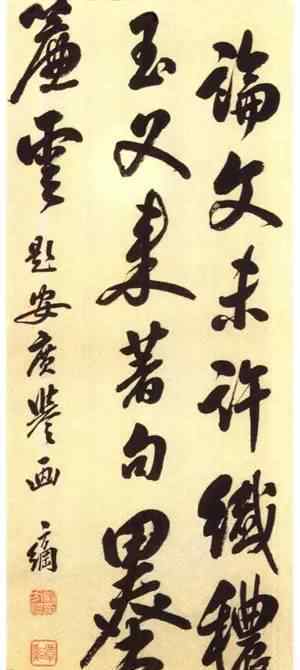 論文未許纖穠
玉又來著句
簾雲
題安廣譽画 方綱